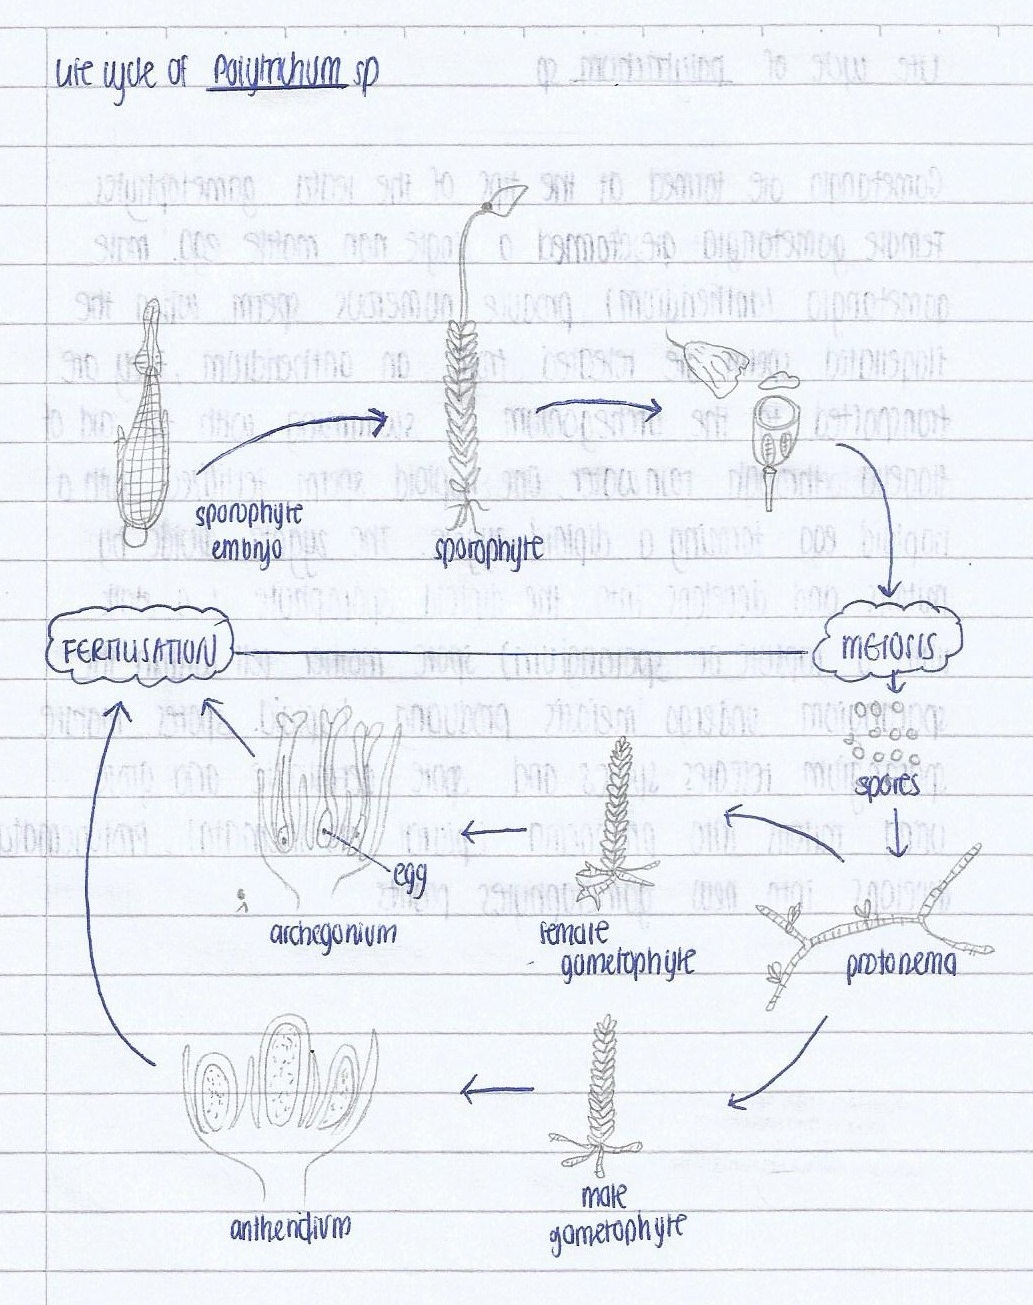 Life cycle of Polytrichum sp
sporophyte
embryo
sporophyte
FERTILISATION
MEIOSIS
spores
egg
archegonium
female
gametophyte
protonema
antheridium
male
gametophyte